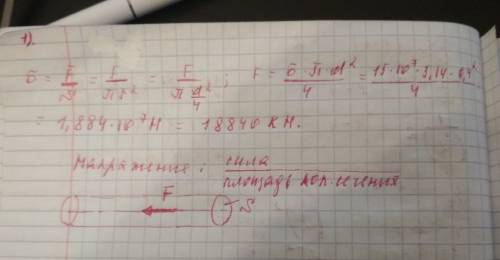 1).
σ = F/S = F/πr² = F/(π d²/4) ; F = σ·π·d²/4 = 15·10⁷·3,14·0,4²/4
= 1,884·10⁷ Н = 18840 кН.
Напряжение: сила/площадь поп. сечения
F
S